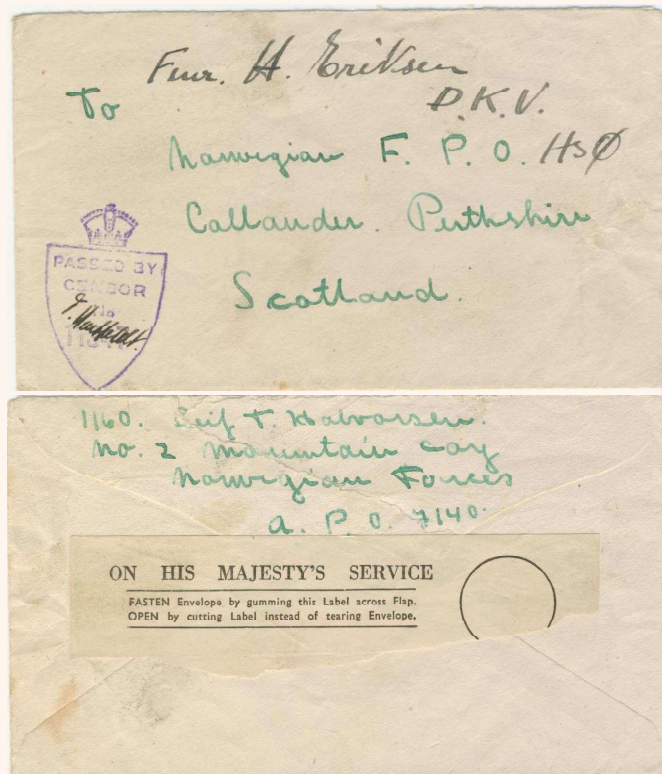 Fur. H. Eriksen
D.K.V.
To
Norwegian F. P. O. HSØ
Callander. Perthshire
Scotland.
PASSED BY
CENSOR
No
1160. Leif T. Halvorsen.
No. 2 Mountain Coy
Norwegian Forces
A. P. O. 7140.
ON HIS MAJESTY'S SERVICE
FASTEN Envelope by gumming this Label across Flap.
OPEN by cutting Label instead of tearing Envelope.